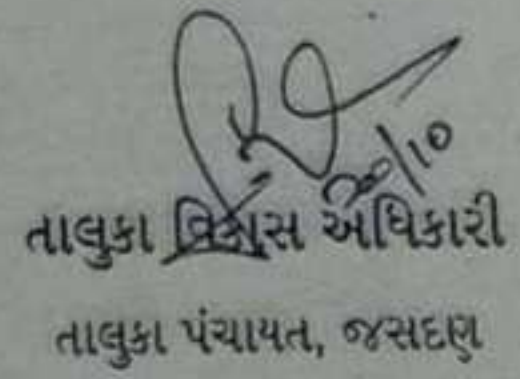 ૨૦/૧૦
તાલુકા વિકાસ અધિકારી
તાલુકા પંચાયત, જસદણ